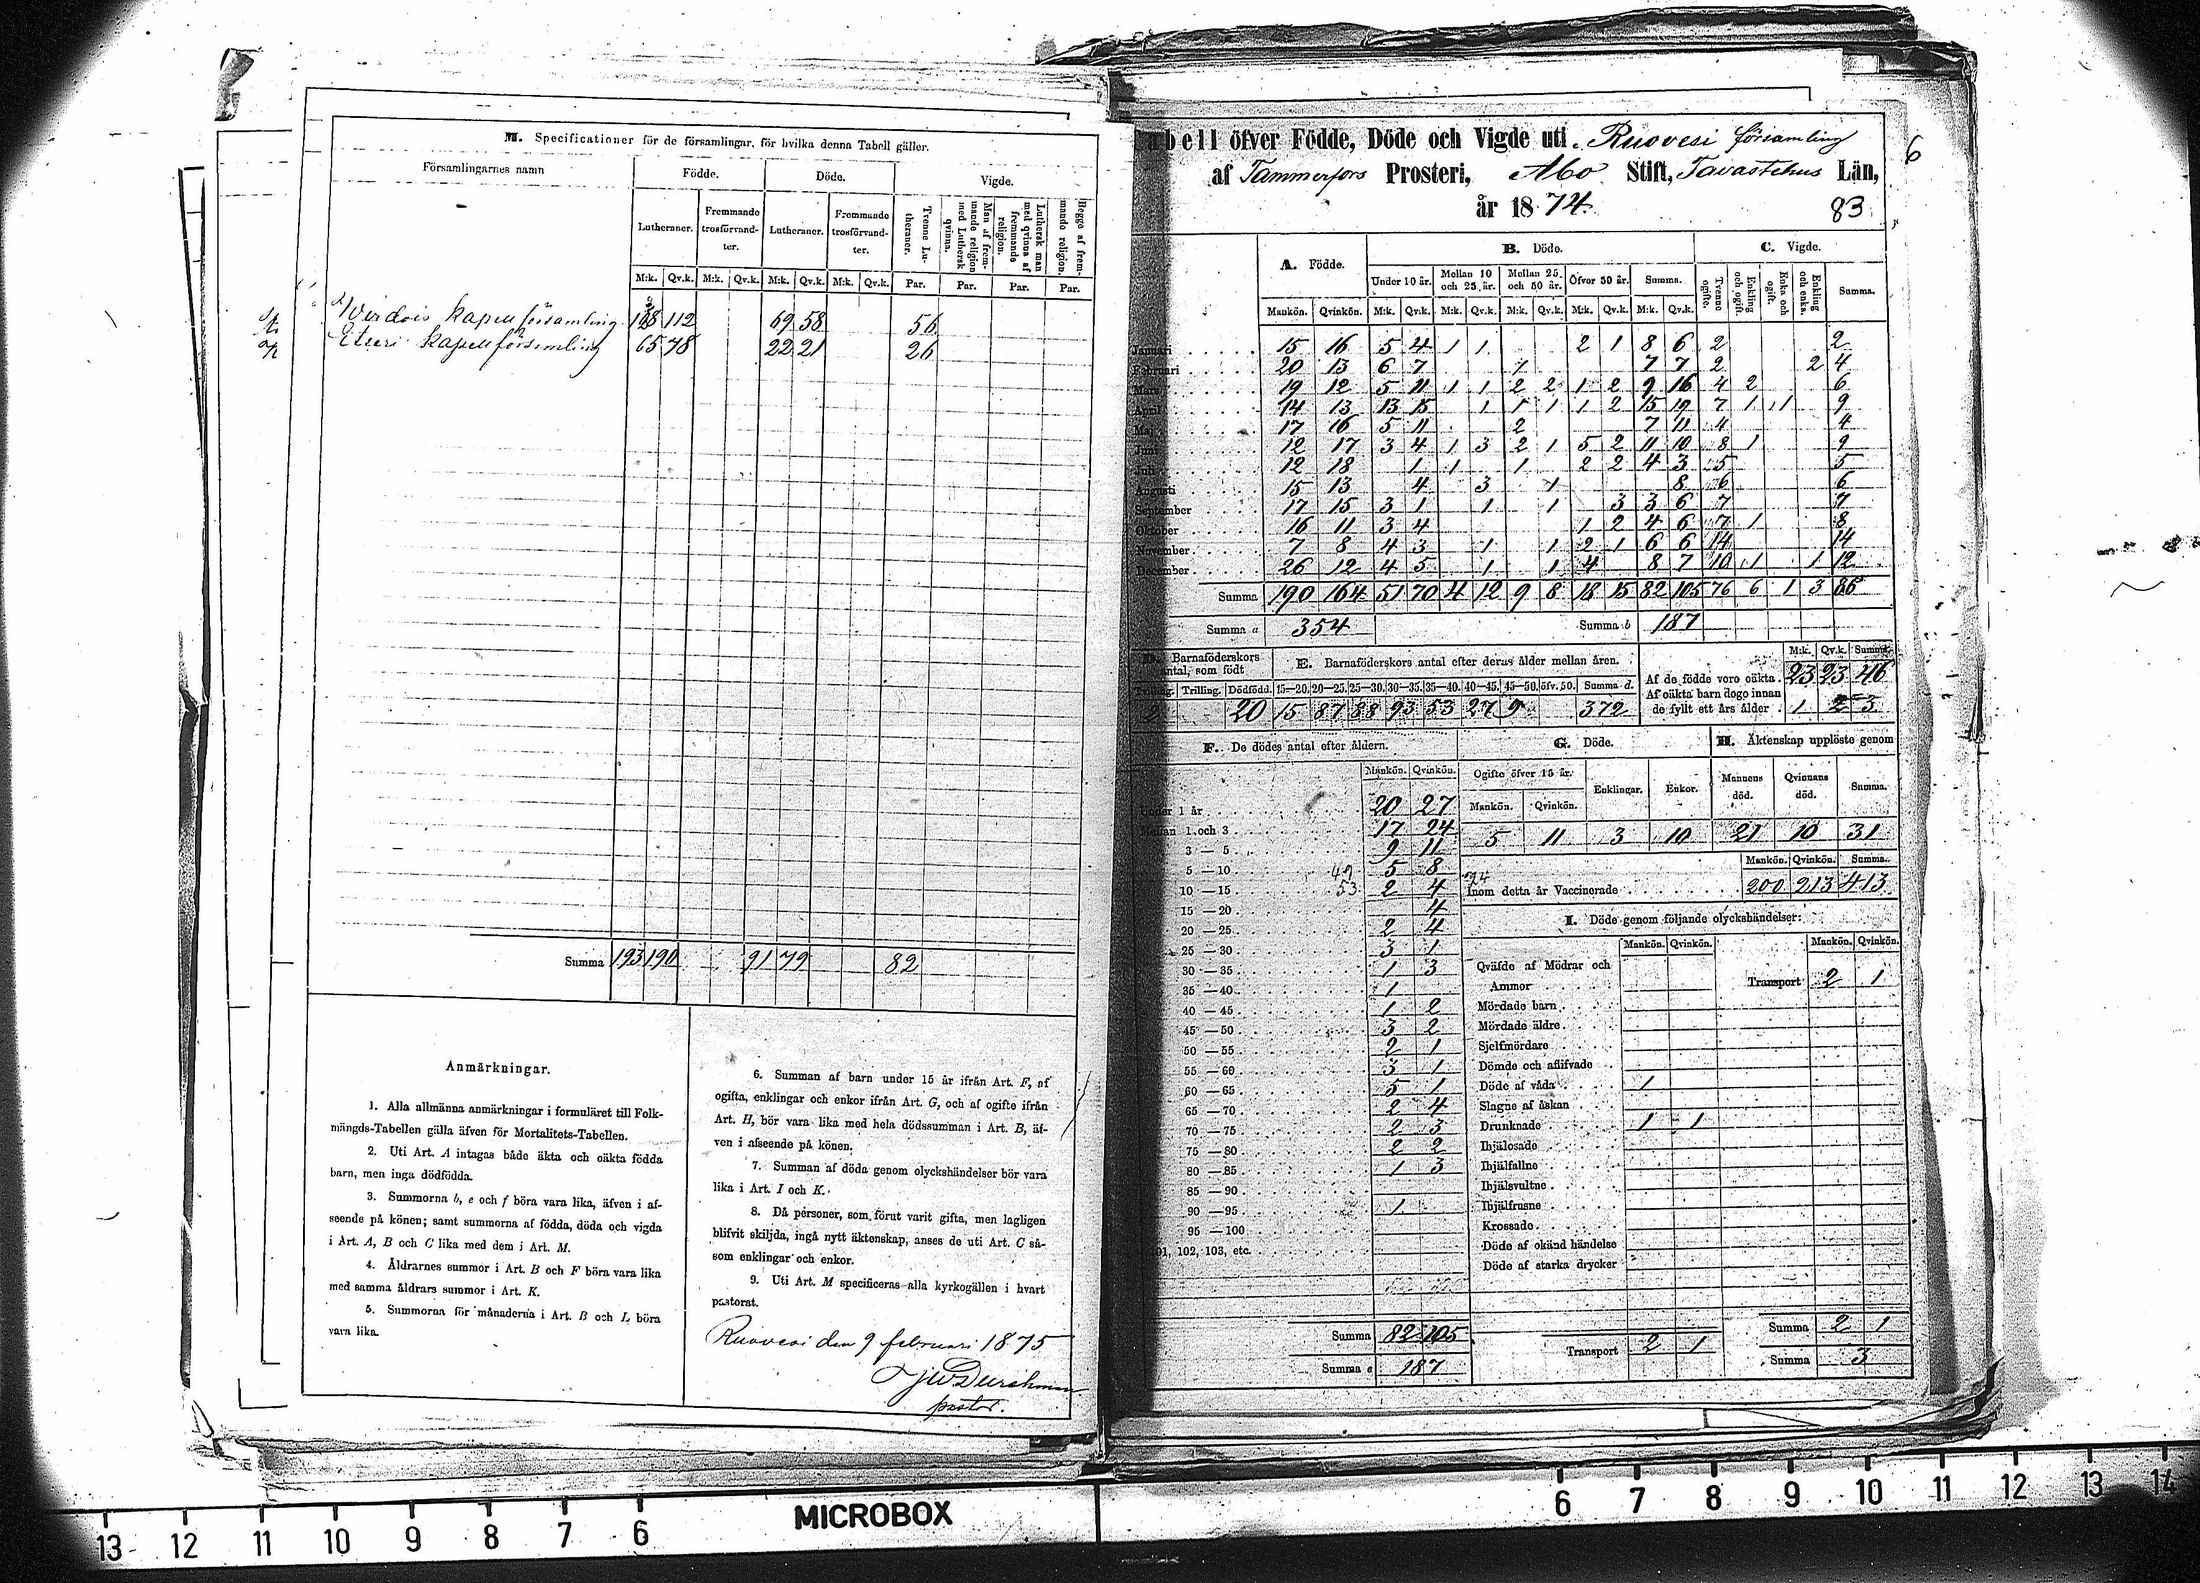 M. Specificationer för de församlingar, för hvilka denna Tabell gäller.
Församlingarnes namn
Födde. Döde. Vigde.
Lutheraner. Fremmande trosförvandter. Lutheraner. Fremmande trosförvandter. Tvenne Lutheraner. Man af fremmande religion med Luthersk qvinna. Luthersk man med qvinna af fremmande religion. Begge af fremmande religion.
M:k. Qv.k. M:k. Qv.k. M:k. Qv.k. M:k. Qv.k. Par. Par. Par. Par.
Virdois kapellförsamling 128 112 69 58 56
Etseri kapellförsamling 65 78 22 21 26
Summa 193 190 91 79 82
Anmärkningar.
1. Alla allmänna anmärkningar i formuläret till Folk-
mängds-Tabellen gälla äfven för Mortalitets-Tabellen.
2. Uti Art. A intagas både äkta och oäkta födda
barn, men inga dödfödda.
3. Summorna b, e och f böra vara lika, äfven i af-
seende på könen; samt summorna af födda, döda och vigda
i Art. A, B och C lika med dem i Art. M.
4. Åldrarnes summor i Art. B och F böra vara lika
med samma åldrars summor i Art. K.
5. Summorna för månaderna i Art. B och L böra
vara lika.
6. Summan af barn under 15 år ifrån Art. F, af
ogifta, enklingar och enkor ifrån Art. G, och af ogifte ifrån
Art. H, bör vara lika med hela dödssumman i Art. B, äf-
ven i afseende på könen.
7. Summan af döda genom olyckshändelser bör vara
lika i Art. I och K.
8. Då personer, som förut varit gifta, men lagligen
blifvit skiljda, ingå nytt äktenskap, anses de uti Art. C så-
som enklingar och enkor.
9. Uti Art. M specificeras alla kyrkogällen i hvart
pastorat.
Ruovesi den 9 februari 1875
pastor.
Tabell öfver Födde, Döde och Vigde uti Ruovesi församling
af Tammerfors Prosteri, Åbo Stift, Tavastehus Län,
år 1874.
83
6
A. Födde. B. Döde. C. Vigde.
Under 10 år. Mellan 10 och 25 år. Mellan 25 och 50 år. Öfver 50 år. Summa. Tvenne ogifte. Enkling och ogift. Enka och ogift. Enkling och enka. Summa.
Mankön. Qvinkön. M:k. Qv.k. M:k. Qv.k. M:k. Qv.k. M:k. Qv.k. M:k. Qv.k.
Januari 15 16 5 4 1 1 2 1 8 6 2 2
Februari 20 13 6 7 1 7 7 2 2 4
Mars 19 12 5 11 1 1 2 2 1 2 9 16 4 2 6
April 14 13 13 15 1 1 1 1 2 15 19 7 1 1 9
Maj 17 16 5 11 2 7 11 4 4
Juni 12 17 3 4 1 3 2 1 5 2 11 10 8 1 9
Juli 12 18 1 1 1 2 2 4 3 5 5
Augusti 15 13 4 3 1 8 6 6
September 17 15 3 1 1 1 3 3 6 7 7
Oktober 16 11 3 4 1 2 4 6 7 1 8
November 7 8 4 3 1 1 2 1 6 6 14 14
December 26 12 4 5 1 1 4 8 7 10 1 1 12
Summa 190 164 51 70 4 12 9 8 18 15 82 105 76 6 1 3 86
Summa a 354 Summa b 187
D. Barnaföderskors antal, som födt
E. Barnaföderskors antal efter deras ålder mellan åren.
Tvilling. Trilling. Dödfödd. 15—20. 20—25. 25—30. 30—35. 35—40. 40—45. 45—50. öfv. 50. Summa d.
2 20 15 87 88 93 53 27 9 372
M:k. Qv.k. Summa.
Af de födde voro oäkta 23 23 46
Af oäkta barn dogo innan
de fyllt ett års ålder 1 2 3
F. De dödes antal efter åldern.
Mankön. Qvinkön.
Under 1 år 20 27
Mellan 1 och 3 17 24
3 — 5 9 11
5 — 10 5 8
10 — 15 2 4
15 — 20 4
20 — 25 2 4
25 — 30 3 1
30 — 35 1 3
35 — 40 1
40 — 45 1 2
45 — 50 3 2
50 — 55 2 1
55 — 60 3 1
60 — 65 5 1
65 — 70 2 4
70 — 75 2 3
75 — 80 2 2
80 — 85 1 3
85 — 90
90 — 95 1
95 — 100
101, 102, 103, etc.
Summa 82 105
Summa e 187
G. Döde.
Ogifte öfver 15 år. Enklingar. Enkor.
Mankön. Qvinkön.
5 11 3 10
H. Äktenskap upplöste genom
Mannens död. Qvinnans död. Summa.
21 10 31
Mankön. Qvinkön. Summa.
Inom detta år Vaccinerade 200 213 413
I. Döde genom följande olyckshändelser:
Mankön. Qvinkön. Mankön. Qvinkön.
Qväfde af Mödrar och
Ammor Transport 2 1
Mördade barn
Mördade äldre
Sjelfmördare
Dömde och aflifvade
Döde af våda 1
Slagne af åskan
Drunknade 1 1
Ihjälosade
Ihjälfallne
Ihjälsvultne
Ihjälfrusne
Krossade
Döde af okänd händelse
Döde af starka drycker
Transport 2 1
Summa 2 1
Summa 3
13 12 11 10 9 8 7 6 MICROBOX 6 7 8 9 10 11 12 13 14